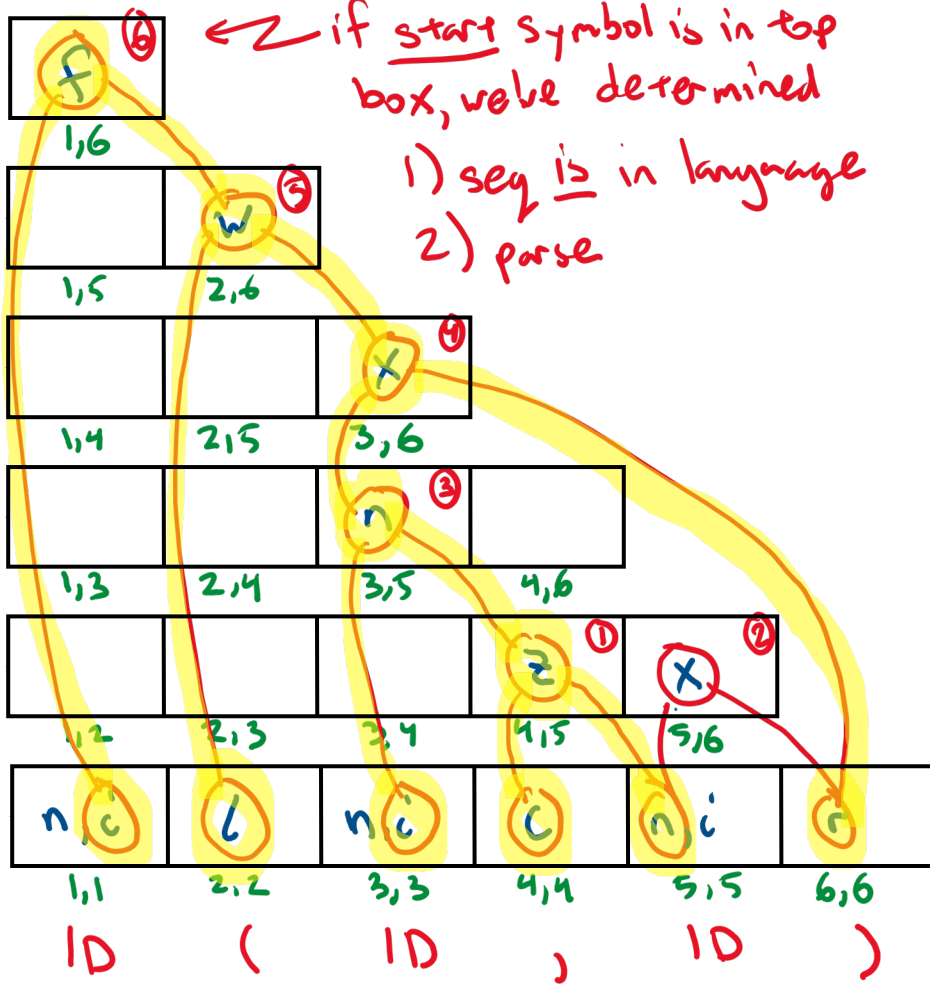 f ⑥ if start symbol is in top
box, we've determined
1,6
1) seq is in language
w ⑤
2) parse
1,5 2,6
X ④
1,4 2,5 3,6
n ③
1,3 2,4 3,5 4,6
Z ① X ②
1,2 2,3 3,4 4,5 5,6
n, i l n, i c n, i r
1,1 2,2 3,3 4,4 5,5 6,6
ID ( ID , ID )